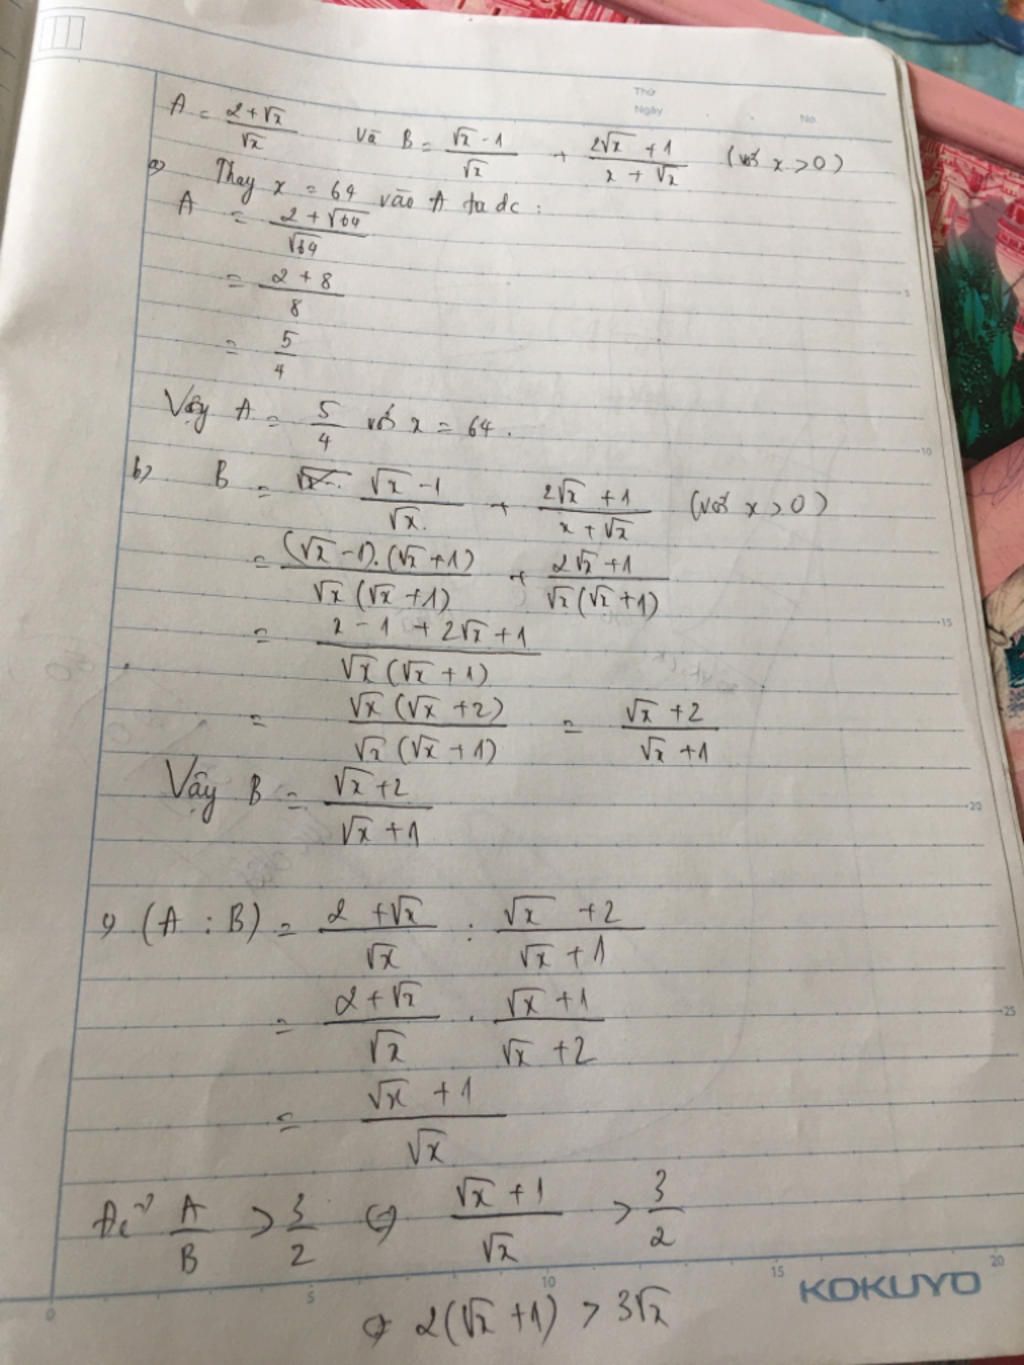 Thứ
Ngày
No.
A = \frac{2+\sqrt{x}}{\sqrt{x}} và B = \frac{\sqrt{x}-1}{\sqrt{x}} + \frac{2\sqrt{x}+1}{x+\sqrt{x}} (với x > 0)
a) Thay x = 64 vào A ta đc :
A = \frac{2+\sqrt{64}}{\sqrt{64}}
= \frac{2+8}{8}
= \frac{5}{4}
Vậy A = \frac{5}{4} với x = 64.
b) B = \frac{\sqrt{x}-1}{\sqrt{x}} + \frac{2\sqrt{x}+1}{x+\sqrt{x}} (với x > 0)
= \frac{(\sqrt{x}-1).(\sqrt{x}+1)}{\sqrt{x}(\sqrt{x}+1)} + \frac{2\sqrt{x}+1}{\sqrt{x}(\sqrt{x}+1)}
= \frac{x-1+2\sqrt{x}+1}{\sqrt{x}(\sqrt{x}+1)}
= \frac{\sqrt{x}(\sqrt{x}+2)}{\sqrt{x}(\sqrt{x}+1)} = \frac{\sqrt{x}+2}{\sqrt{x}+1}
Vậy B = \frac{\sqrt{x}+2}{\sqrt{x}+1}
c) (A : B) = \frac{2+\sqrt{x}}{\sqrt{x}} : \frac{\sqrt{x}+2}{\sqrt{x}+1}
= \frac{2+\sqrt{x}}{\sqrt{x}} . \frac{\sqrt{x}+1}{\sqrt{x}+2}
= \frac{\sqrt{x}+1}{\sqrt{x}}
Để \frac{A}{B} > \frac{3}{2} ⇔ \frac{\sqrt{x}+1}{\sqrt{x}} > \frac{3}{2}
⇔ 2(\sqrt{x}+1) > 3\sqrt{x}
5
10
15
20
25
0 5 10 15 20
KOKUYO